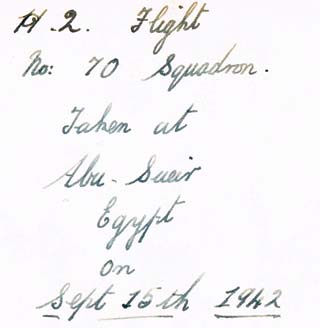 H.2. Flight
No: 70 Squadron.
Taken at
Abu-Sueir
Egypt
on
Sept 15th 1942